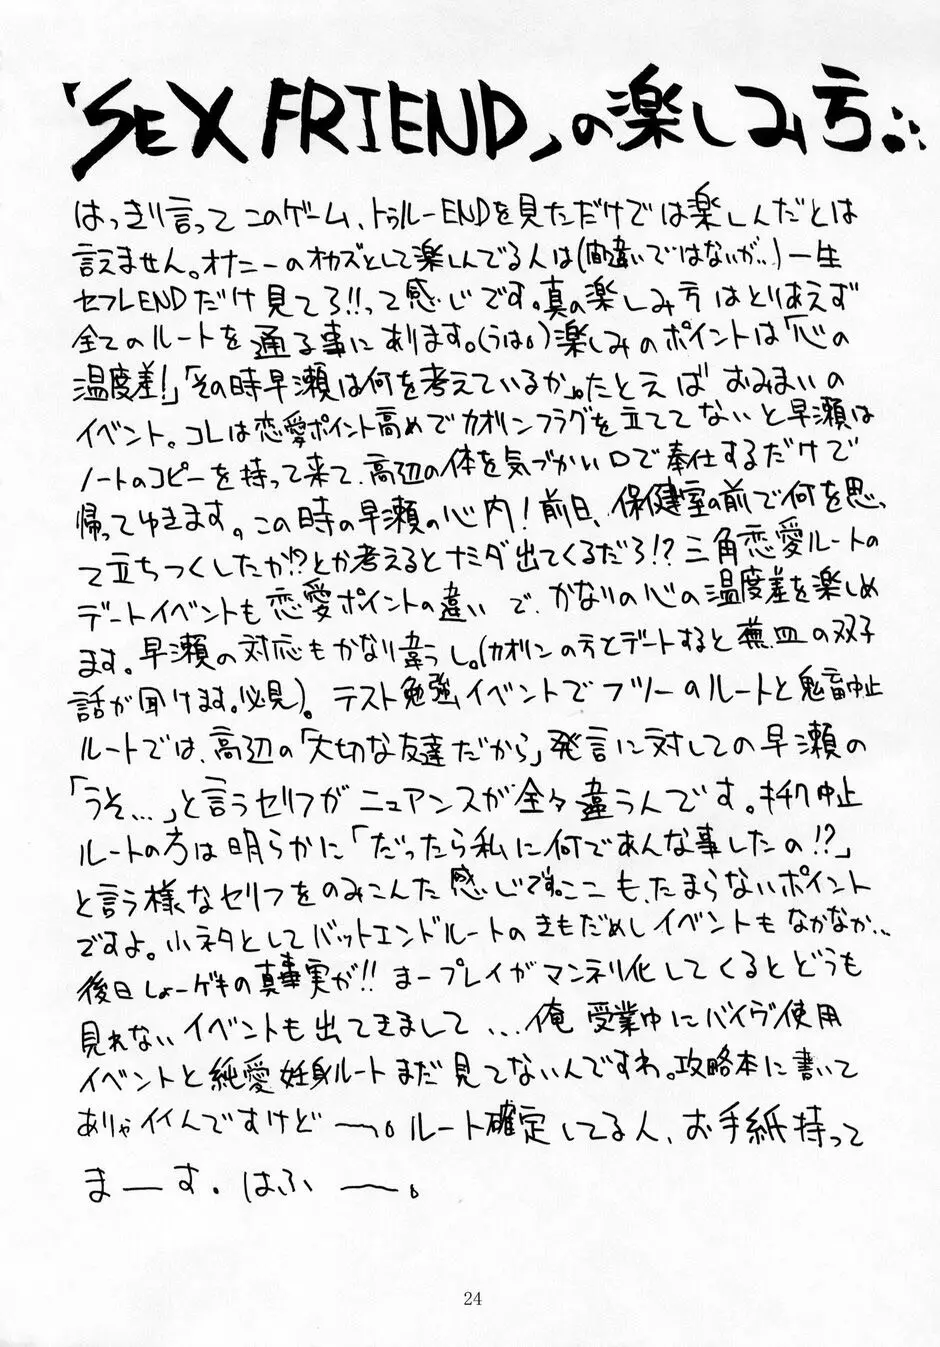 「SEX FRIEND」の楽しみ方。
はっきり言ってこのゲーム、トゥルーENDを見ただけでは楽しんだとは
言えません。オナニーのオカズとして楽しんでる人は(間違いではないが…)一生
セフレENDだけ見てろ!!って感じです。真の楽しみ方はとりあえず
全てのルートを通る事にあります。(うは。)楽しみのポイントは「心の
温度差!」「その時早瀬は何を考えているか」。たとえばおみまいの
イベント。コレは恋愛ポイント高めでカオリンフラグを立ててないと早瀬は
ノートのコピーを持って来て、高辺の体を気づかい口で奉仕するだけで
帰ってゆきます。この時の早瀬の心内!前日、保健室の前で何を思っ
て立ちつくしたか!?とか考えるとナミダ出てくるだろ!?三角恋愛ルートの
デートイベントも恋愛ポイントの違いで、かなりの心の温度差を楽しめ
ます。早瀬の対応もかなり違うし。(カオリンの方とデートすると蕪皿の双子
話が聞けます。必見)。テスト勉強イベントでフツーのルートと鬼畜中止
ルートでは、高辺の「大切な友達だから」発言に対しての早瀬の
「うそ…」と言うセリフがニュアンスが全々違うんです。キチク中止
ルートの方は明らかに「だったら私に何であんな事したの!?」
と言う様なセリフをのみこんだ感じです。ここも、たまらないポイント
ですよ。小ネタとしてバットエンドルートのきもだめしイベントもなかなか…
後日しょーゲキの真事実が!!まープレイがマンネリ化してくるとどうも
見れないイベントも出てきまして…俺受業中にバイヴ使用
イベントと純愛妊身ルートまだ見てないんですわ。攻略本に書いて
ありゃイイんですけど〜。ルート確定してる人、お手紙持って
まーす。はふー。
24